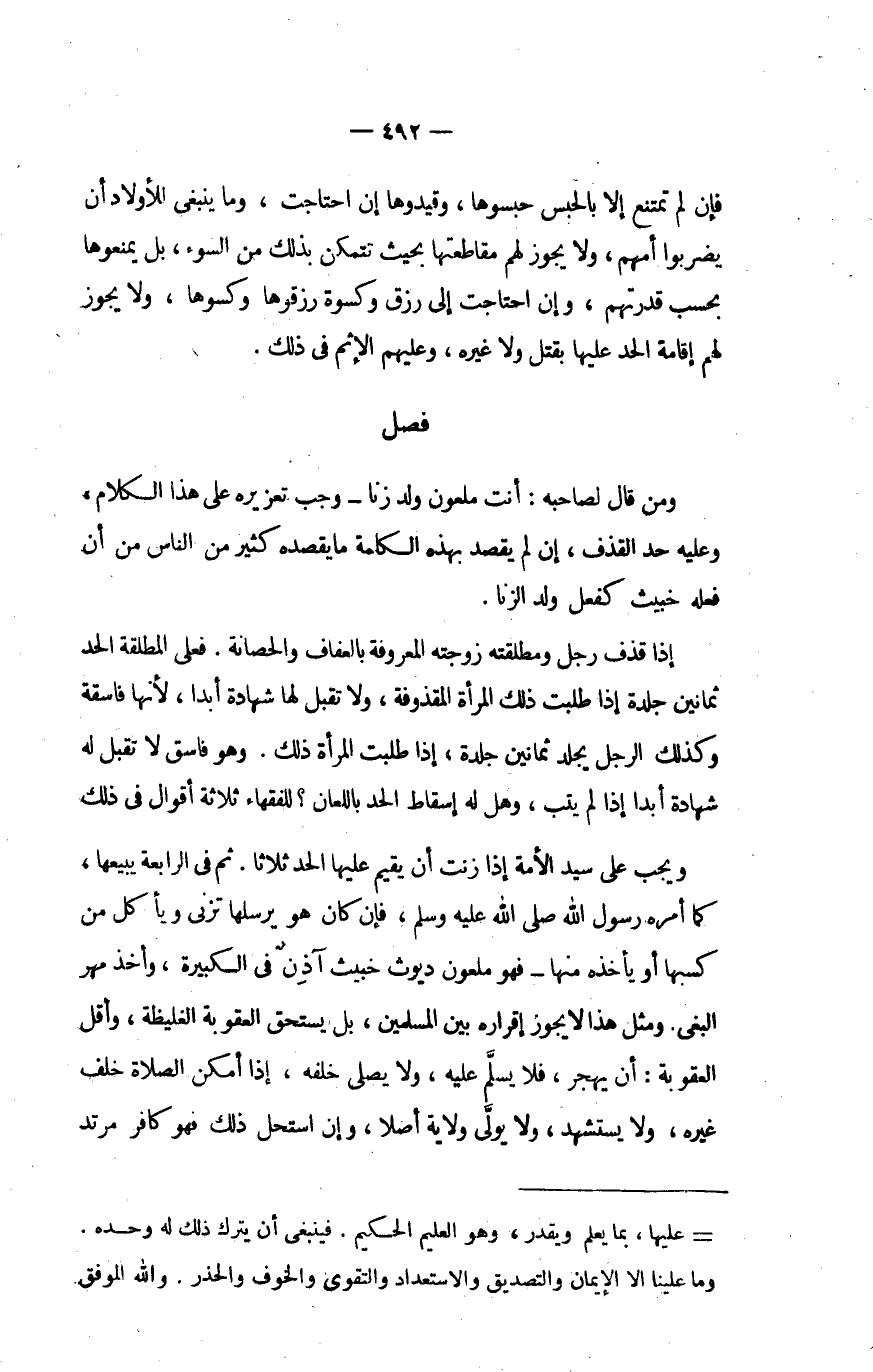 — ٤٩٢ —
فإن لم تمتنع إلا بالحبس حبسوها ، وقيدوها إن احتاجت ، وما ينبغى للأولاد أن
يضربوا أمهم ، ولا يجوز لهم مقاطعتها بحيث تتمكن بذلك من السوء ، بل يمنعوها
بحسب قدرتهم ، وإن احتاجت إلى رزق وكسوة رزقوها وكسوها ، ولا يجوز
لهم إقامة الحد عليها بقتل ولا غيره ، وعليهم الإثم فى ذلك .
فصل
ومن قال لصاحبه : أنت ملعون ولد زنا – وجب تعزيره على هذا الكلام ،
وعليه حد القذف ، إن لم يقصد بهذه الكلمة مايقصده كثير من الناس من أن
فعله خبيث كفعل ولد الزنا .
إذا قذف رجل ومطلقته زوجته المعروفة بالعفاف والحصانة . فعلى المطلقة الحد
ثمانين جلدة إذا طلبت ذلك المرأة المقذوفة ، ولا تقبل لها شهادة أبدا ، لأنها فاسقة
وكذلك الرجل يجلد ثمانين جلدة ، إذا طلبت المرأة ذلك . وهو فاسق لا تقبل له
شهادة أبدا إذا لم يتب ، وهل له إسقاط الحد باللعان ؟ للفقهاء ثلاثة أقوال فى ذلك
ويجب على سيد الأمة إذا زنت أن يقيم عليها الحد ثلاثا . ثم فى الرابعة يبيعها ،
كما أمره رسول الله صلى الله عليه وسلم ، فإن كان هو يرسلها تزنى ويأكل من
كسبها أو يأخذه منها – فهو ملعون ديوث خبيث آذِنٌ فى الكبيرة ، وأخذ مهر
البغى . ومثل هذا لايجوز إقراره بين المسلمين ، بل يستحق العقوبة الغليظة ، وأقل
العقوبة : أن يهجر ، فلا يسلَّم عليه ، ولا يصلى خلفه ، إذا أمكن الصلاة خلف
غيره ، ولا يستشهد ، ولا يولَّى ولاية أصلا ، وإن استحل ذلك فهو كافر مرتد
= عليها ، بما يعلم ويقدر ، وهو العليم الحكيم . فينبغى أن يترك ذلك له وحده .
وما علينا الا الإيمان والتصديق والاستعداد والتقوى والخوف والحذر . والله الموفق